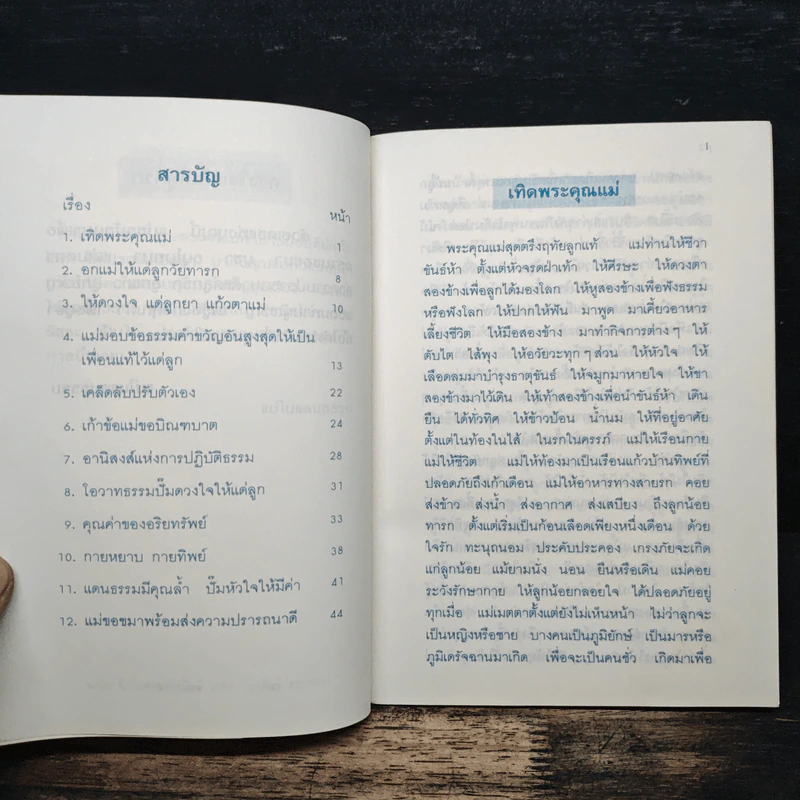 สารบัญ
เรื่อง
หน้า
1. เทิดพระคุณแม่ 1
2. อกแม่ให้แด่ลูกวัยทารก 8
3. ให้ดวงใจ แด่ลูกยา แก้วตาแม่ 10
4. แม่มอบข้อธรรมคำขวัญอันสูงสุดให้เป็น
เพื่อนแท้ไว้แด่ลูก 13
5. เคล็ดลับปรับตัวเอง 22
6. เก้าข้อแม่ขอบิณฑบาต 24
7. อานิสงส์แห่งการปฏิบัติธรรม 28
8. โอวาทธรรมปั๊มดวงใจให้แด่ลูก 31
9. คุณค่าของอริยทรัพย์ 33
10. กายหยาบ กายทิพย์ 38
11. แดนธรรมมีคุณล้ำ ปั๊มหัวใจให้มีค่า 41
12. แม่ขอขมาพร้อมส่งความปรารถนาดี 44
1
เทิดพระคุณแม่
พระคุณแม่สุดตรึงฤทัยลูกแท้ แม่ท่านให้ชีวา
ขันธ์ห้า ตั้งแต่หัวจรดฝ่าเท้า ให้ศีรษะ ให้ดวงตา
สองข้างเพื่อลูกได้มองโลก ให้หูสองข้างเพื่อฟังธรรม
หรือฟังโลก ให้ปากให้ฟัน มาพูด มาเคี้ยวอาหาร
เลี้ยงชีวิต ให้มือสองข้าง มาทำกิจการต่างๆ ให้
ตับไต ไส้พุง ให้อวัยวะทุกๆส่วน ให้หัวใจ ให้
เลือดลมมาบำรุงธาตุขันธ์ ให้จมูกมาหายใจ ให้ขา
สองข้างมาไว้เดิน ให้เท้าสองข้างเพื่อนำขันธ์ห้า เดิน
ยืน ได้ทั่วทิศ ให้ข้าวป้อน น้ำนม ให้ที่อยู่อาศัย
ตั้งแต่ในท้องในไส้ ในรกในครรภ์ แม่ให้เรือนกาย
แม่ให้ชีวิต แม่ให้ท้องมาเป็นเรือนแก้วบ้านทิพย์ที่
ปลอดภัยถึงเก้าเดือน แม่ให้อาหารทางสายรก คอย
ส่งข้าว ส่งน้ำ ส่งอากาศ ส่งเสบียง ถึงลูกน้อย
ทารก ตั้งแต่เริ่มเป็นก้อนเลือดเพียงหนึ่งเดือน ด้วย
ใจรัก ทะนุถนอม ประคับประคอง เกรงภัยจะเกิด
แก่ลูกน้อย แม้ยามนั่ง นอน ยืนหรือเดิน แม่คอย
ระวังรักษากาย ให้ลูกน้อยกลอยใจ ได้ปลอดภัยอยู่
ทุกเมื่อ แม่เมตตาตั้งแต่ยังไม่เห็นหน้า ไม่ว่าลูกจะ
เป็นหญิงหรือชาย บางคนเป็นภูมิยักษ์ เป็นมารหรือ
ภูมิเดรัจฉานมาเกิด เพื่อจะเป็นคนชั่ว เกิดมาเพื่อ